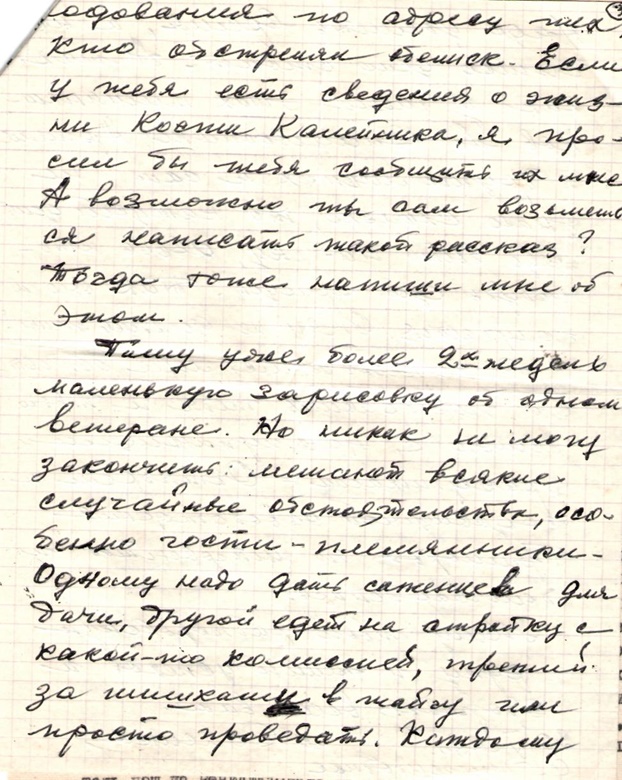 одования по адресу тех,
кто обстрелян
Если
у тебя есть сведения о жиз-
ни Кости Калейника, я про-
сил бы тебя сообщить их мне
А возможно ты сам возьмешь
ся написать такой рассказ?
Тогда тоже напиши мне об
этом.
Пишу уже более 2х недель
маленькую зарисовку об одном
ветеране. Но никак не могу
закончить: мешают всякие
случайные обстоятельства, осо-
бенно гости – племянники –
Одному надо дать саженцев для
дачи, другой едет на стройку с
какой-то комиссией, третий
за шишками в тайгу или
просто проведать. Каждому